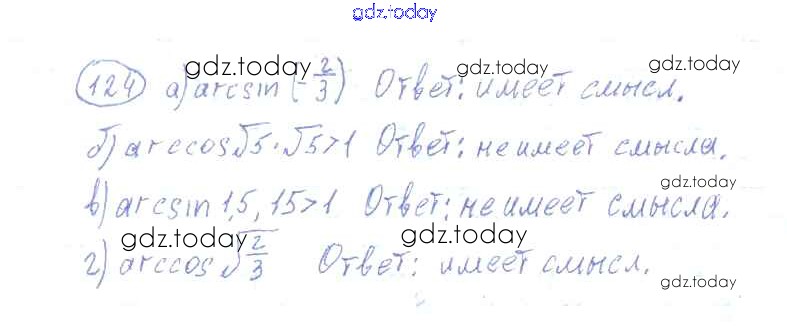 gdz.today
124 а) arcsin (-2/3) Ответ: имеет смысл.
gdz.today gdz.today gdz.today
б) arccos √5 · √5 > 1 Ответ: не имеет смысла.
gdz.today
в) arcsin 1,5, 15 > 1 Ответ: не имеет смысла.
gdz.today gdz.today
г) arccos √2/3 Ответ: имеет смысл.
gdz.today